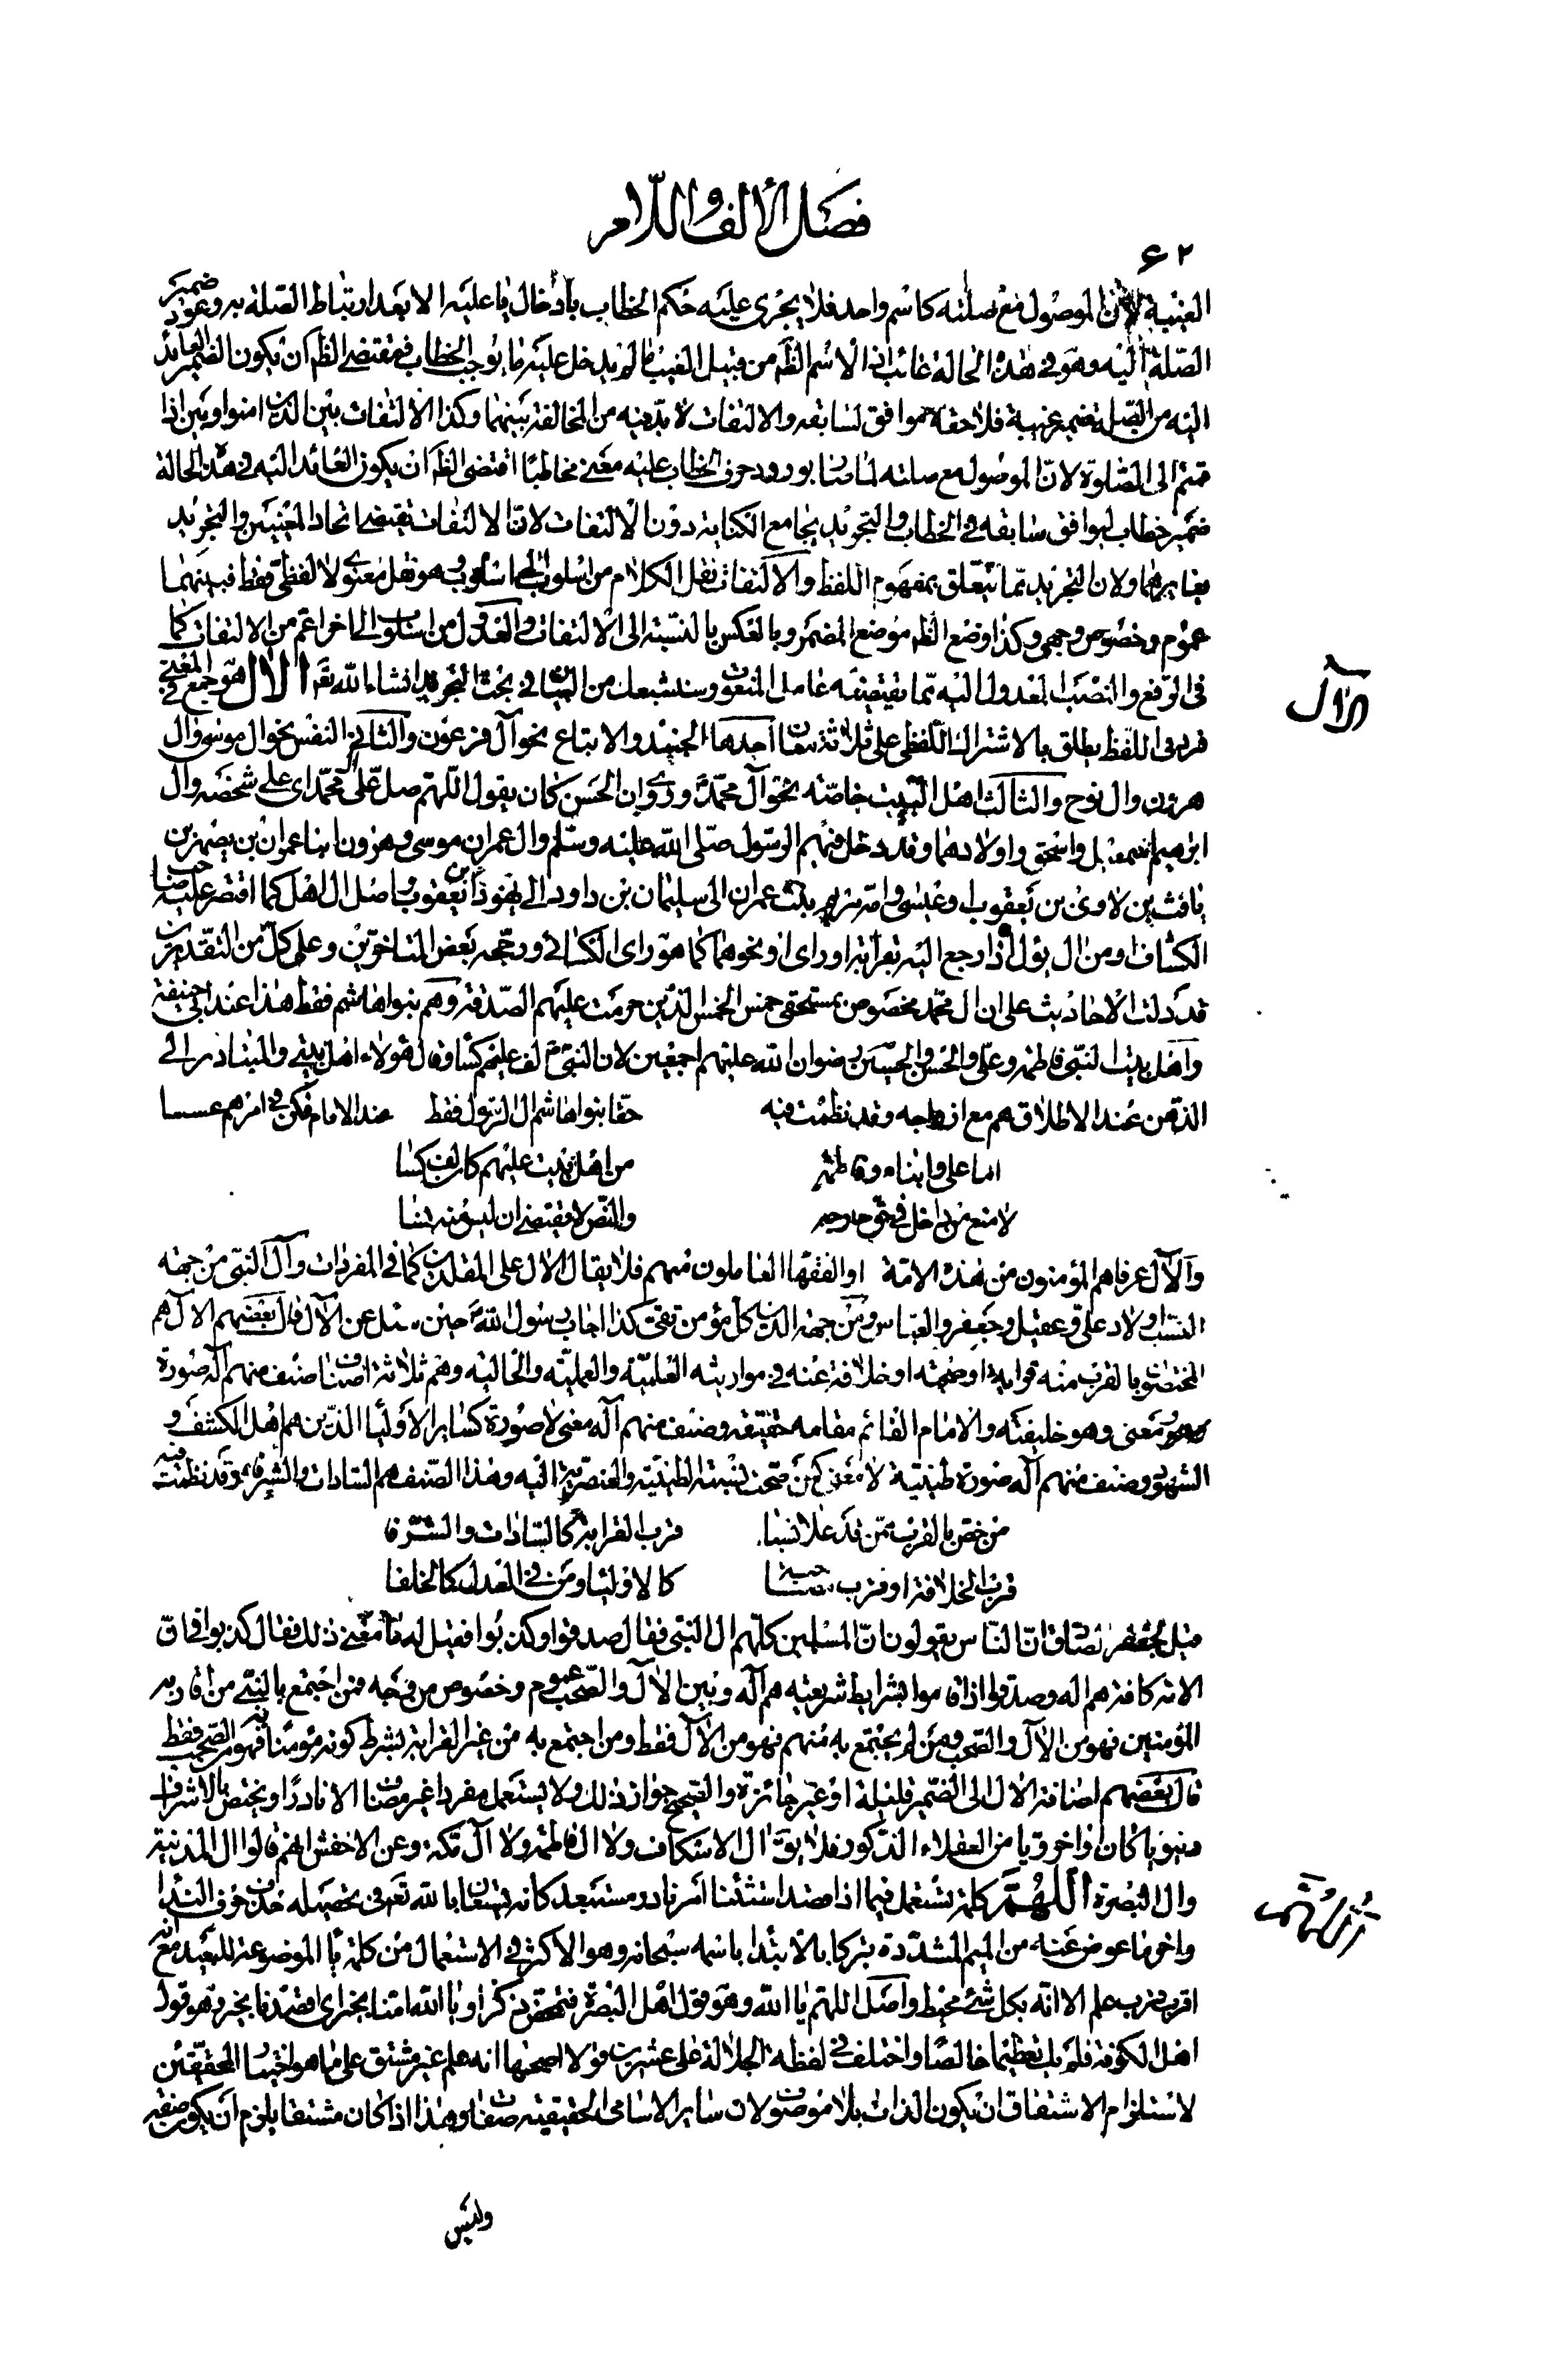 فصل الألف واللام
٦٢
الغيبة لأن الموصول مع صلته كاسم واحد فلا يجرى عليه حكم الخطاب بادخال يا عليه الا بعد ارتباط الصلة به وعود ضمير
الصلة اليه وهو فى هذه الحالة غائب اذ الاسم الظـ من قبيل الغيب ما لم يدخل عليه ما يوجب الخطاب فمقتضى الظـ ان يكون الضمير العايد
اليه من الصلة ضمير غيبة فلاحقه موافق لسابقه والالتفات لا بد فيه من المخالفة بينهما وكذا الالتفات بين الذين امنوا وبين اذا
قمتم الى الصلوة لان الموصول مع صلته لما صار بورود حرف الخطاب عليه معنى مخاطبا اقتضى الظـ ان يكون العائد اليه فى هذه الحالة
ضمير خطاب ليوافق سابقه فى الخطاب والتجريد يجامع الكناية دون الالتفات لان الالتفات يقتضى اتحاد المعنيين والتجريد
يغايرهما ولان التجريد مما يتعلق بمفهوم اللفظ والالتفات نقل الكلام من اسلوب الى اسلوب وهو نقل معنوى لا لفظى فقط فبينهما
عموم وخصوص وجهى وكذا وضع الظـ موضع المضمر وبالعكس بالنسبة الى الالتفات والعدول من اسلوب الى اخر اعم من الالتفات كما
فى الرفع والنصب المعدول اليه مما يقتضيه عامل المنعوت وسنشبعك من البيان فى بحث التجريد انشاء الله تعـ الآل هو جمع فى المعنى
فرد فى اللفظ يطلق بالاشتراك اللفظى على ثلاثة معان احدها الجند والاتباع نحو آل فرعون والثانى النفس نحو ال موسى وال
هرون وال نوح والثالث اهل البيت خاصة نحو آل محمد وروى ان الحسن كان يقول اللهم صل على آل محمد اى على شخصه وال
ابرهيم اسمعيل واسحق واولادهما وقد دخل فيهم الرسول صلى الله عليه وسلم وال عمران موسى وهرون ابنا عمران بن يصهر بن
يافث بن لاوى بن يعقوب او عيسى وامه مريم بنت عمران الى سليمان بن داود الى يهوذا بن يعقوب واصل ال اهل كما اقتصر عليه صاحب
الكشاف او من ال يئول اذا رجع اليه بقرابة او راى او نحوهما كما هو راى الكسائى ورجحه بعض المتاخرين وعلى كل من التقديرين
قد دلت الاحاديث على ان ال محمد مخصوص بمستحقى خمس الخمس الذين حرمت عليهم الصدقة وهم بنوا هاشم فقط هذا عند ابى حنيفة
واهل بيت النبى فاطمة وعلى والحسن والحسين رضوان الله عليهم اجمعين لان النبى لف عليهم كساء وقال هؤلاء اهل بيتى والمتبادر الى
الذهن عند الاطلاق هم مع ازواجه وقد نظمت فيه حقا بنوا هاشم ال الرسول فقط عند الامام فكن فى امرهم عسسا
اما على وابناه وفاطمة من اهل بيت عليهم كان لف كسا
لا منع من داخل فى حق خارجه والنص لا يقتضى ان ليس منه نسا
والآل عرفا هم المؤمنون من هذه الامة او الفقها العاملون منهم فلا يقال الآل على المقلدين كما فى المفردات وآل النبى من جهة
النسب اولاد على وعقيل وجعفر والعباس ومن جهة الدين كل مؤمن تقى كذا اجاب رسول الله حين سئل عن الآل قال بعضهم الآل هم
المختصون بالقرب منه قرابة او صحبة او خلافة عنه فى مواريثه العلمية والعملية والحالية وهم ثلاثة اصناف صنف منهم آله صورة
ومعنى وهو خليفته والامام القائم مقامه حقيقة وصنف منهم آله معنى لا صورة كساير الاوليا الذين هم اهل الكشف و
الشهود وصنف منهم آله صورة طينية لا معنى كمن صحت نسبته الطينية والعنصرية اليه وهذا الصنف هم السادات والشرفاء وقد نظمت فيه
من خص بالقرب ممن قد علا نسبا قرب القرابة كالسادات والشرفا
قرب الخلافة او قرب كالاوليا ومن فى العدل كالخلفا
قيل لجعفر الصادق ان الناس يقولون ان المسلمين كلهم ال النبى فقال صدقوا وكذبوا فقيل له ما معنى ذلك فقال كذبوا فى ان
الامة كافة هم اله وصدقوا اذا قاموا بشرايط شريعته هم آله وبين الآل والصحب عموم وخصوص من وجه فمن اجتمع بالنبى من اقاربه
المؤمنين فهو من الآل والصحب ومن لم يجتمع به منهم فهو من الآل فقط ومن اجتمع به من غير القرابة بشرط كونه مؤمنا فهو من الصحب فقط
قال بعضهم اضافة الآل الى الضمير قليلة او غير جائزة والصحيح جواز ذلك ولا يستعمل مفردا غير مضاف الا نادرا ويختص بالاشراف
دنيويا كان او اخرويا من العقلاء الذكور فلا يقـ ال الاسكاف ولا ال فاطمة ولا آل مكة وعن الاخفش انهم قالوا ال المدينة
وال البصرة اللهم كلمة تستعمل فيما اذا قصد استثناء امر نادر مستبعد كانه يستعان بالله تعـ فى تحصيله حذف حرف النداء
واخر ما عوض عنه من الميم المشددة تبركا بالابتداء باسمه سبحانه وهو الاكثر فى الاستعمال من كلمة يا الموضوعة للبعيد مع انه
اقرب قرب علم الا انه بكل شئ محيط واصل اللهم يا الله وهو قول اهل البصرة فتمحض ذكرا او يا الله امنا بخير اى اقصدنا بخير وهو قول
اهل الكوفة فلم يك تعظيما خالصا واختلف فى لفظة الجلالة على عشرين قولا اصحها انه علم غير مشتق على ما هو اختيار المحققين
لاستلزام الاشتقاق ان يكون الذات بلا موصوف لان ساير الاسامى الحقيقية صفات وهذا اذا كان مشتقا يلزم ان يكون صفة
وليس
الآل
اللهم